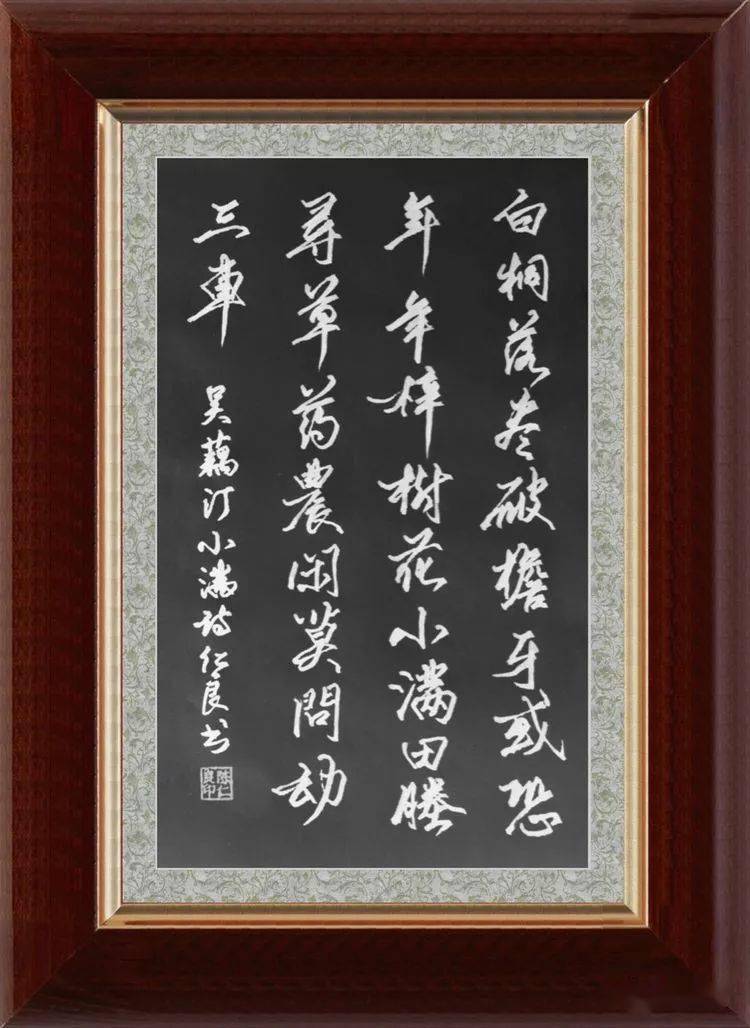 白桐落尽破檐牙或恐
年年梓樹花小满田塍
尋草药農闲莫問劫
三車 吴藕汀小满诗仁良书
陈仁良印